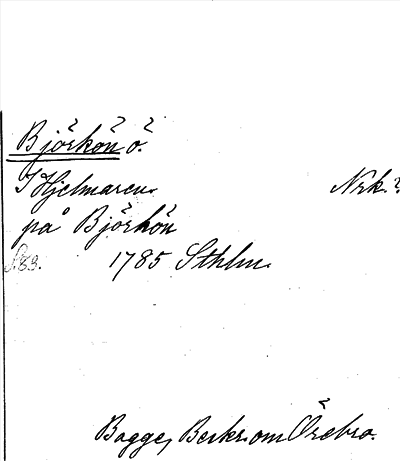 Björkön ö.
I Hjelmaren. Nrk.?
på Björkön
S. 83. 1785 Sthlm.
Bagge, Beskr. om Örebro.